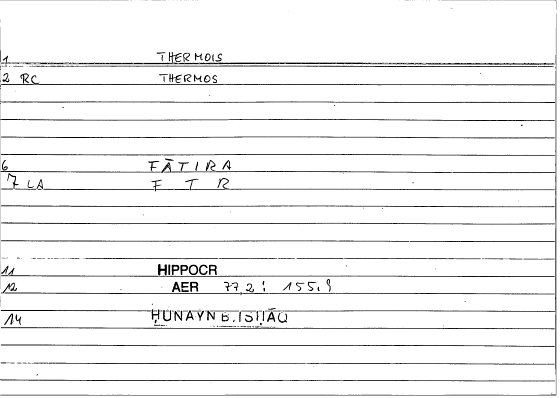 1 THERMOIS
2 RC THERMOS
6 FĀTIRA
7 LA F T R
11 HIPPOCR
12 AER 77,2 : 155,9
14 ḤUNAYN B. ISḤĀQ